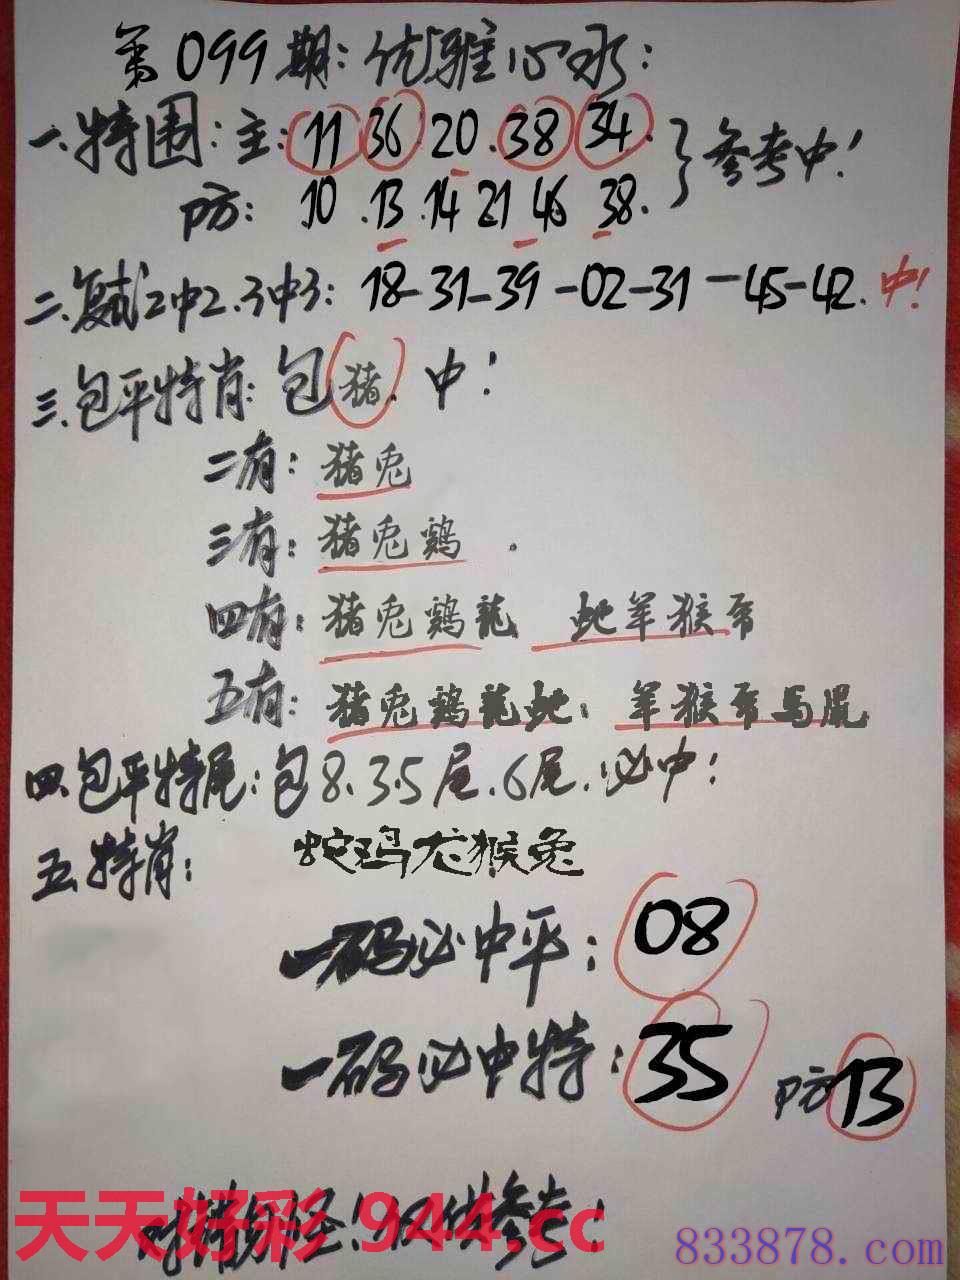 第099期：优雅心水：
一.特围：主：11 36 20.38 34. }参考中！
防：10.13.14 21 46 38.
二.复试2中2.3中3：18-31-39-02-31-45-42.中！
三.包平特肖：包猪.中！
二有：猪兔
三有：猪兔鷄.
四有：猪兔鷄龍 蛇羊猴帝
五有：猪兔鷄龍蛇：羊猴帝马鼠
四.包平特尾：包8.3.5尾.6尾.必中！
五.特肖：蛇鸡龙猴兔
一码必中平：08
一码必中特：35 防13
天天好彩 944.cc
仅供参考！
833878.com